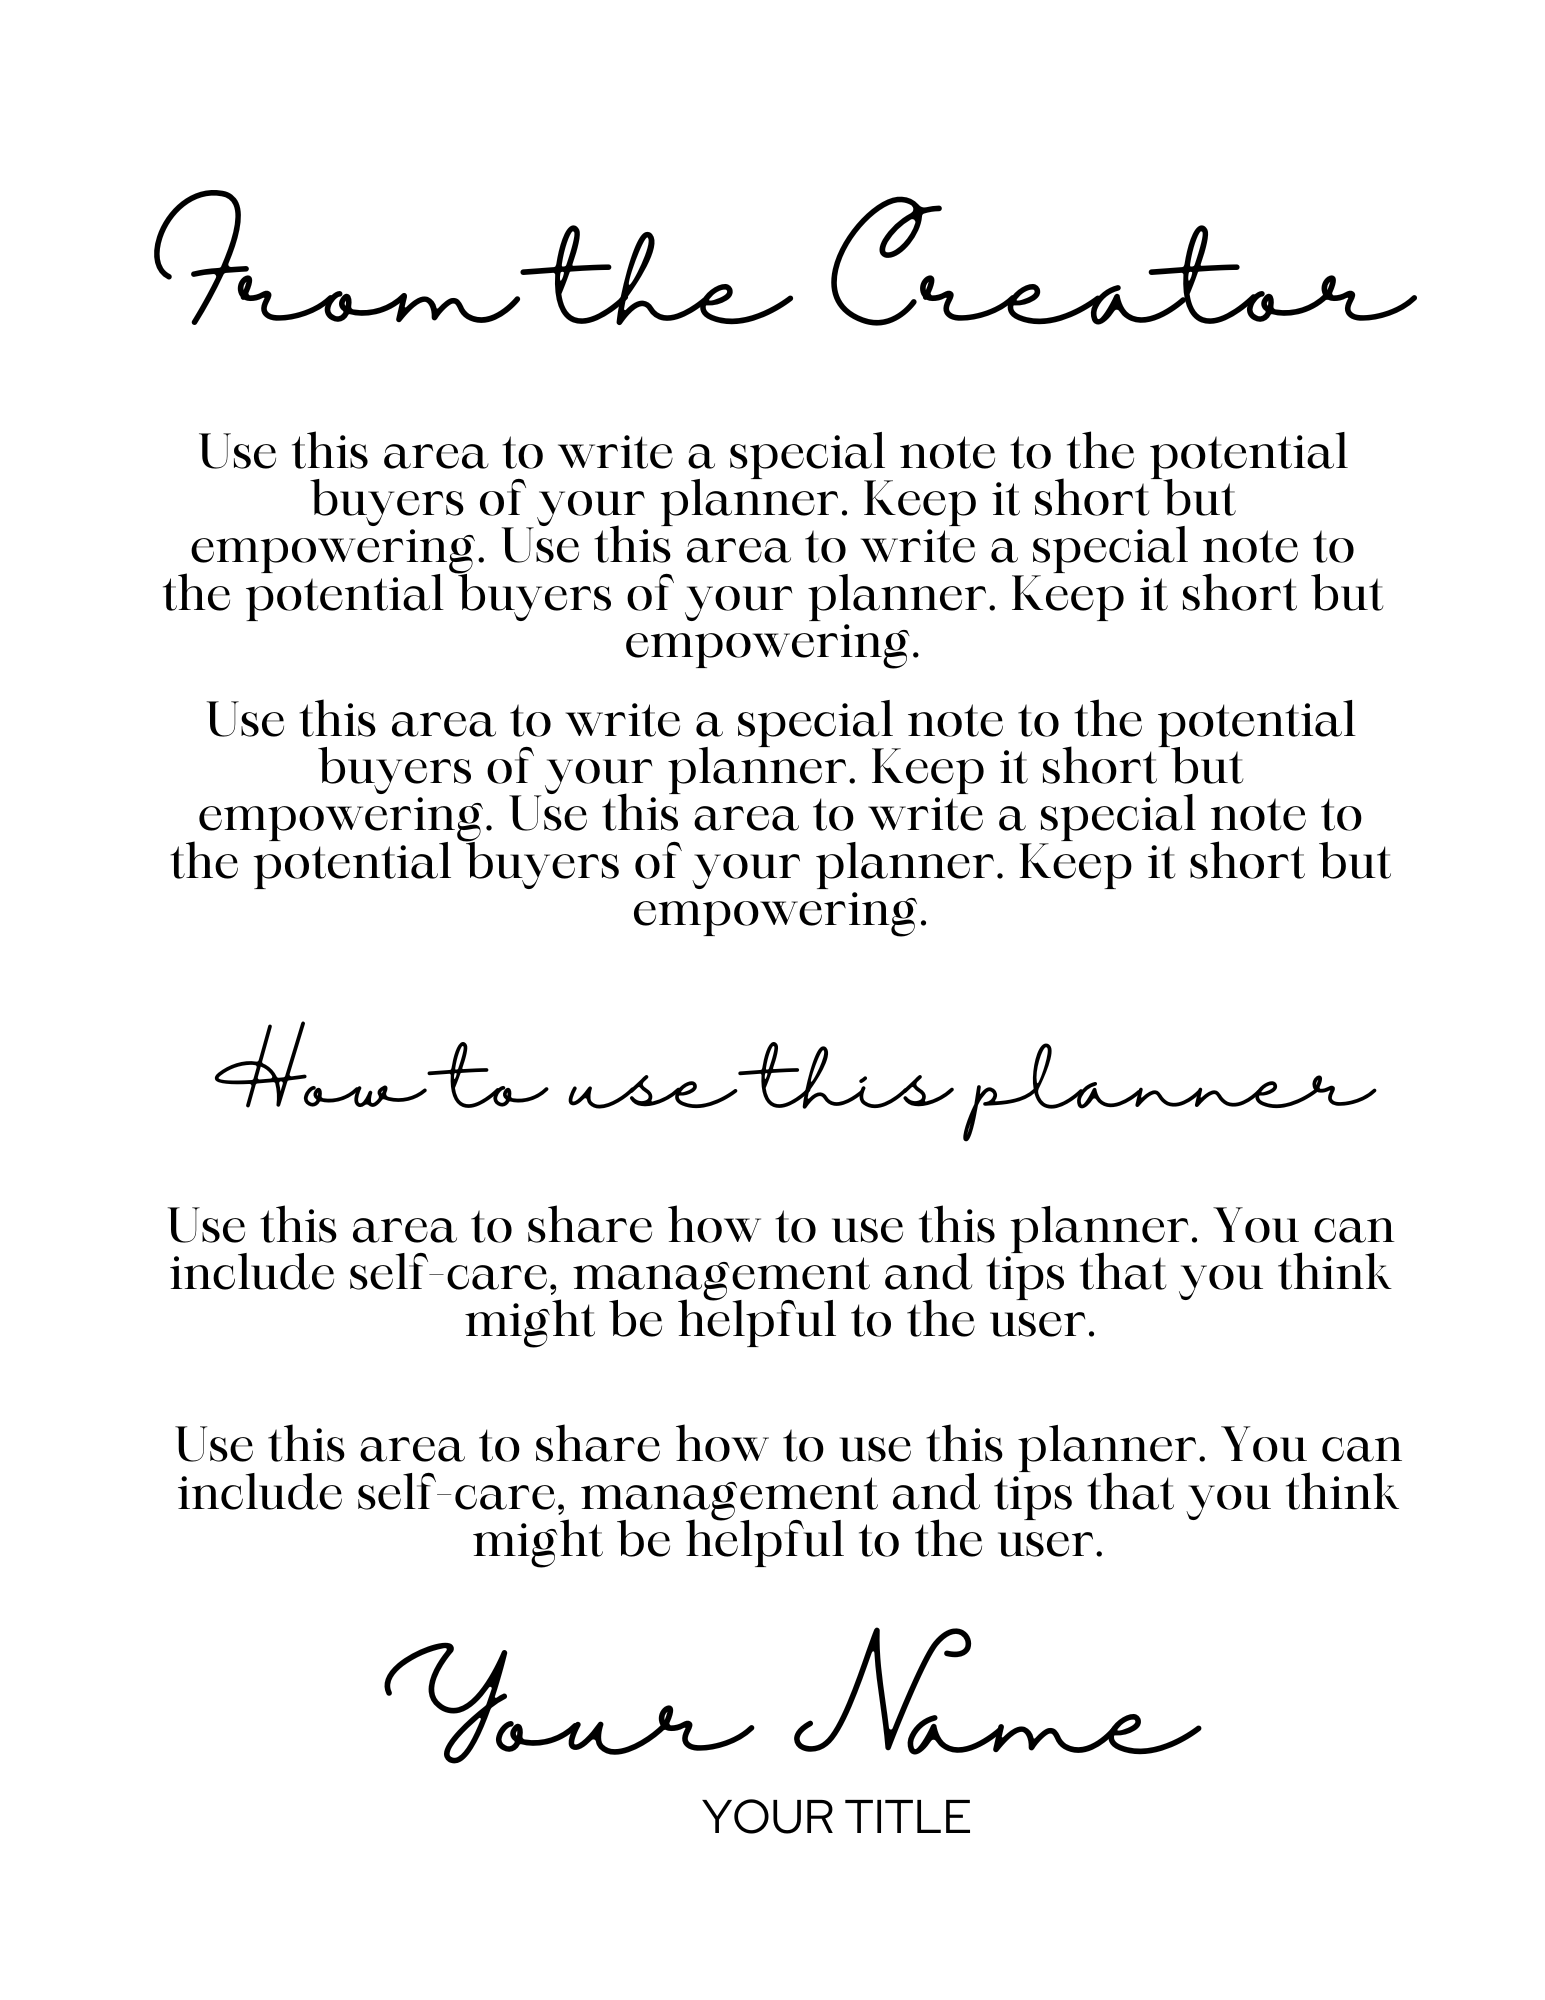 From the Creator
Use this area to write a special note to the potential
buyers of your planner. Keep it short but
empowering. Use this area to write a special note to
the potential buyers of your planner. Keep it short but
empowering.
Use this area to write a special note to the potential
buyers of your planner. Keep it short but
empowering. Use this area to write a special note to
the potential buyers of your planner. Keep it short but
empowering.
How to use this planner
Use this area to share how to use this planner. You can
include self-care, management and tips that you think
might be helpful to the user.
Use this area to share how to use this planner. You can
include self-care, management and tips that you think
might be helpful to the user.
Your Name
YOUR TITLE